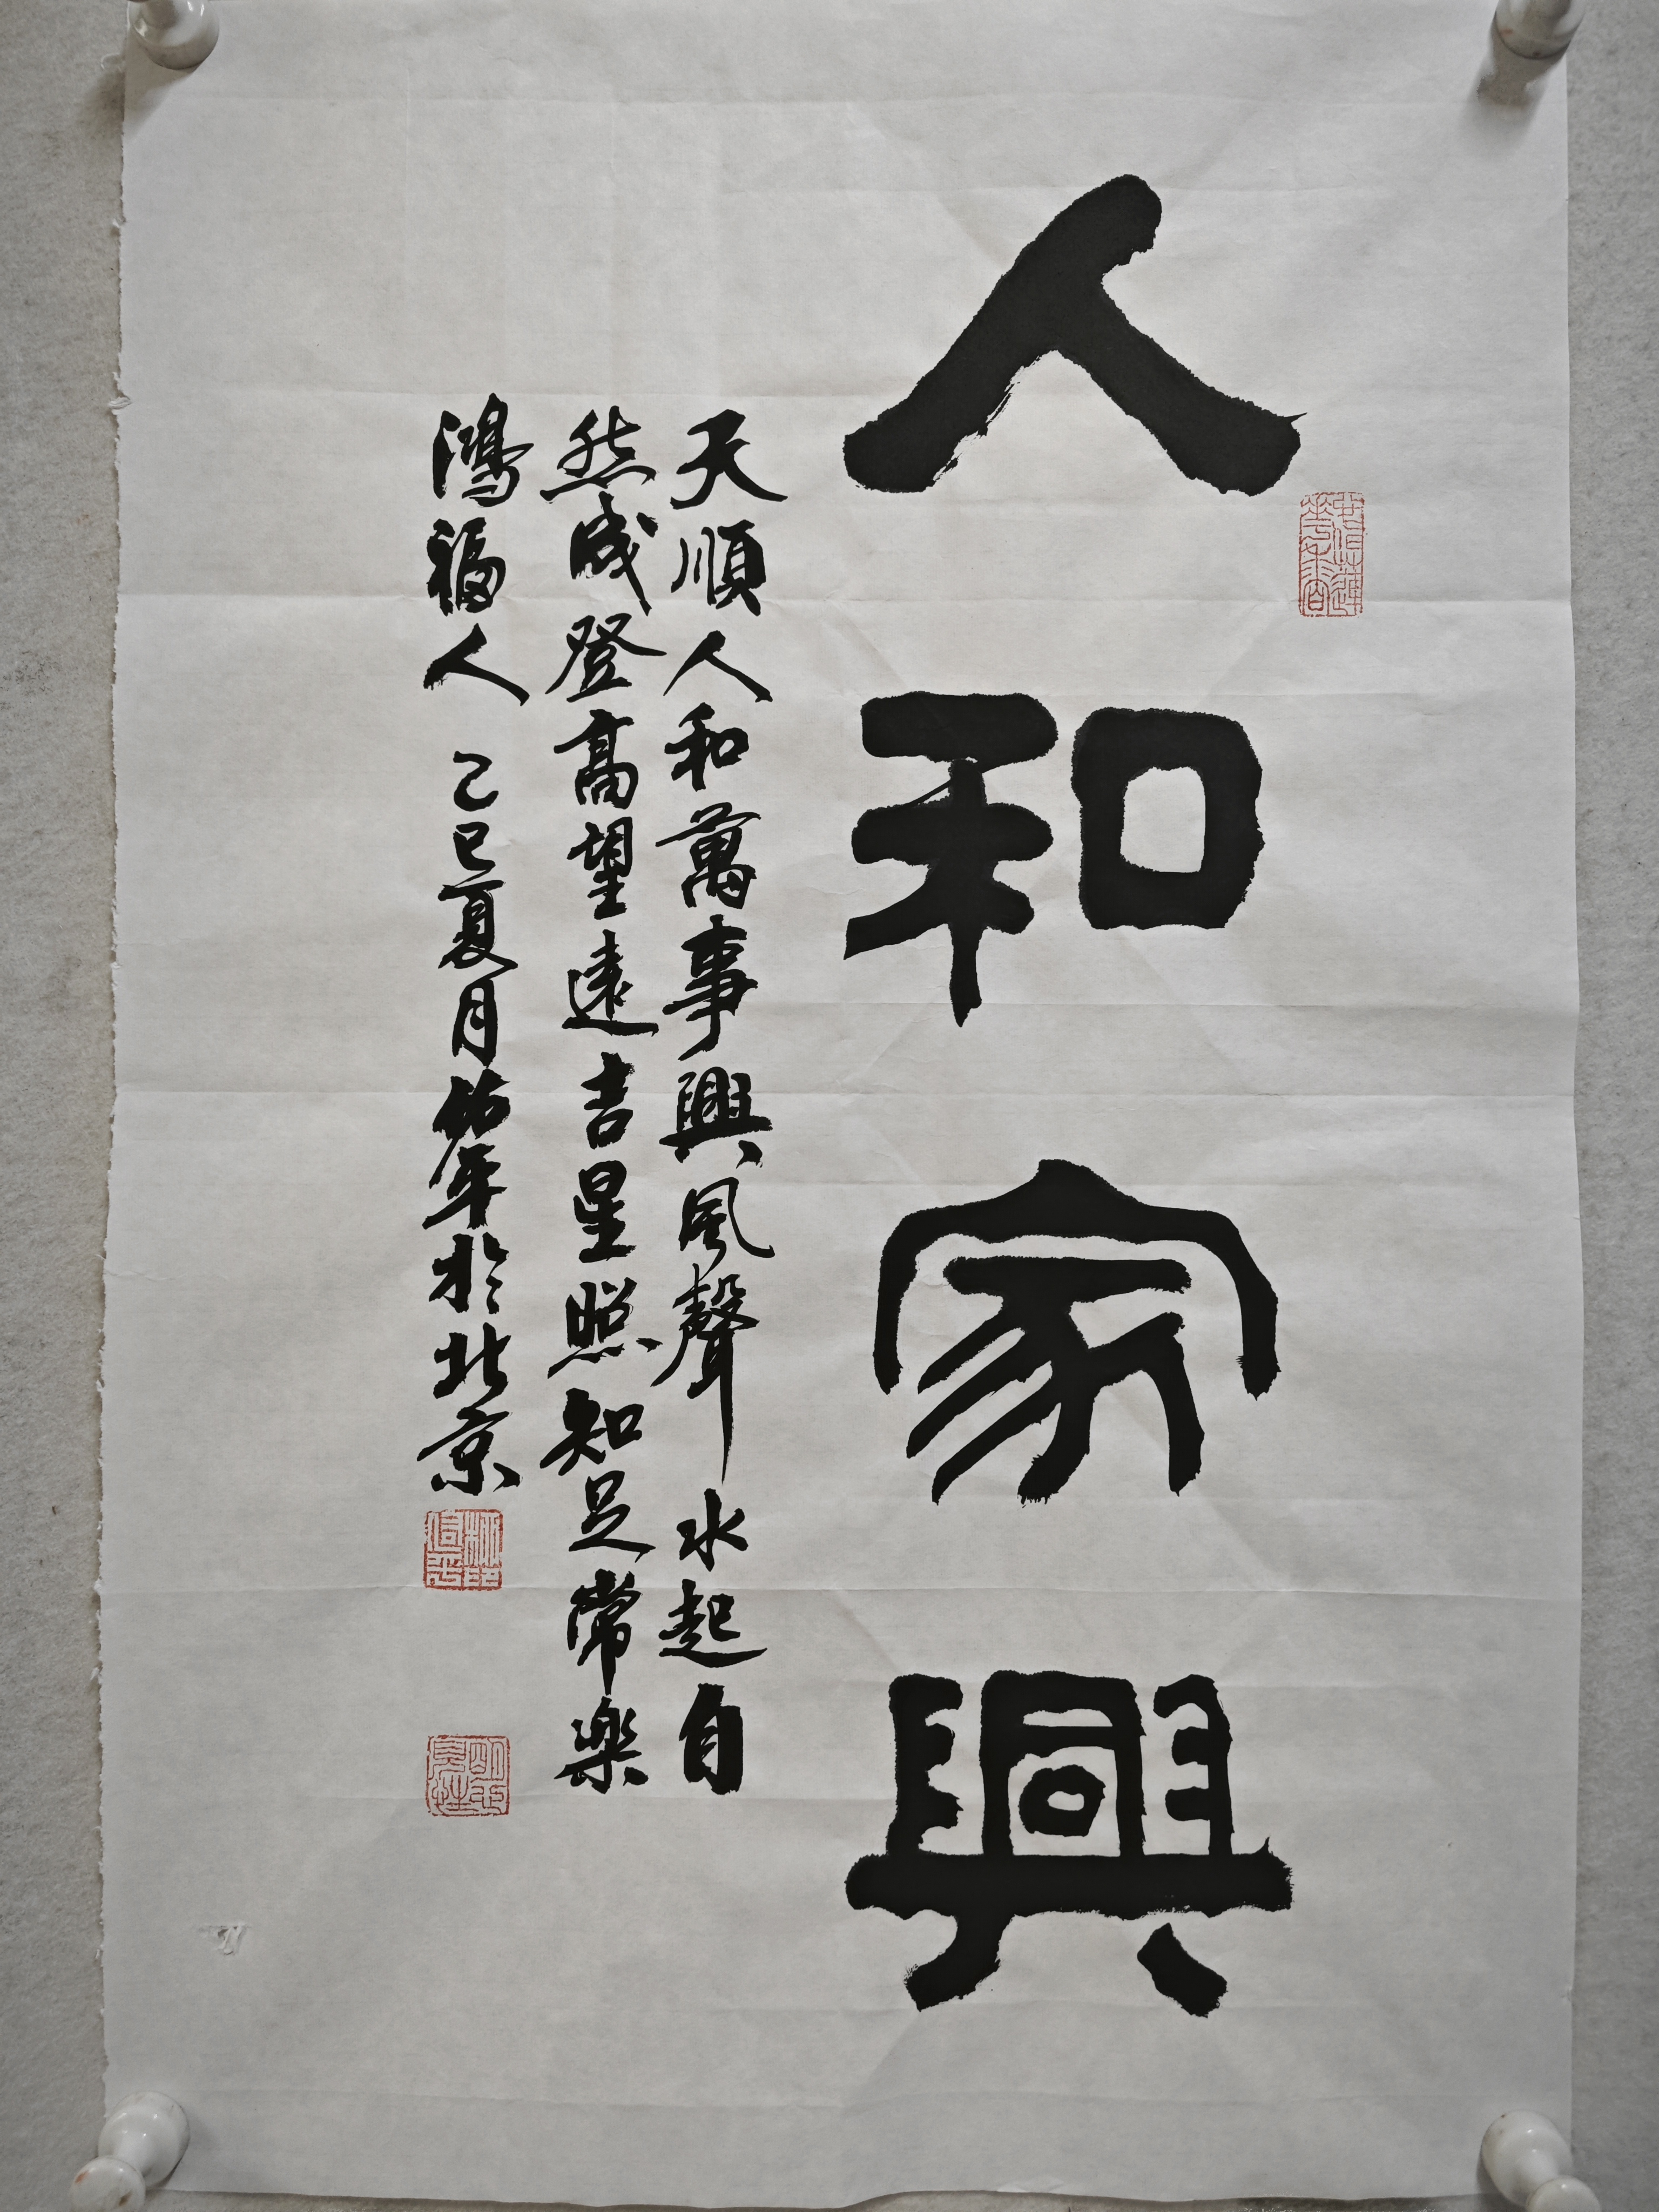 人和家興
天順人和萬事興風聲水起自
然成登高望遠吉星照知足常樂
鴻福人 乙巳夏月佑年於北京